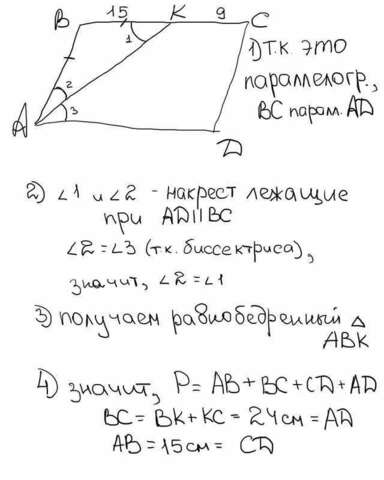 B 15 K 9 C
1
2
3
A
D
1) Т.К. ЭТО
параллелогр.,
BC парал. AD
2) ∠1 и ∠2 - накрест лежащие
при AD||BC
∠2=∠3 (тк. биссектриса),
значит, ∠2=∠1
3) получаем равнобедренный △
ABK
4) значит, P= AB+BC+CD+AD
BC= BK+KC= 24см=AD
AB=15см= CD